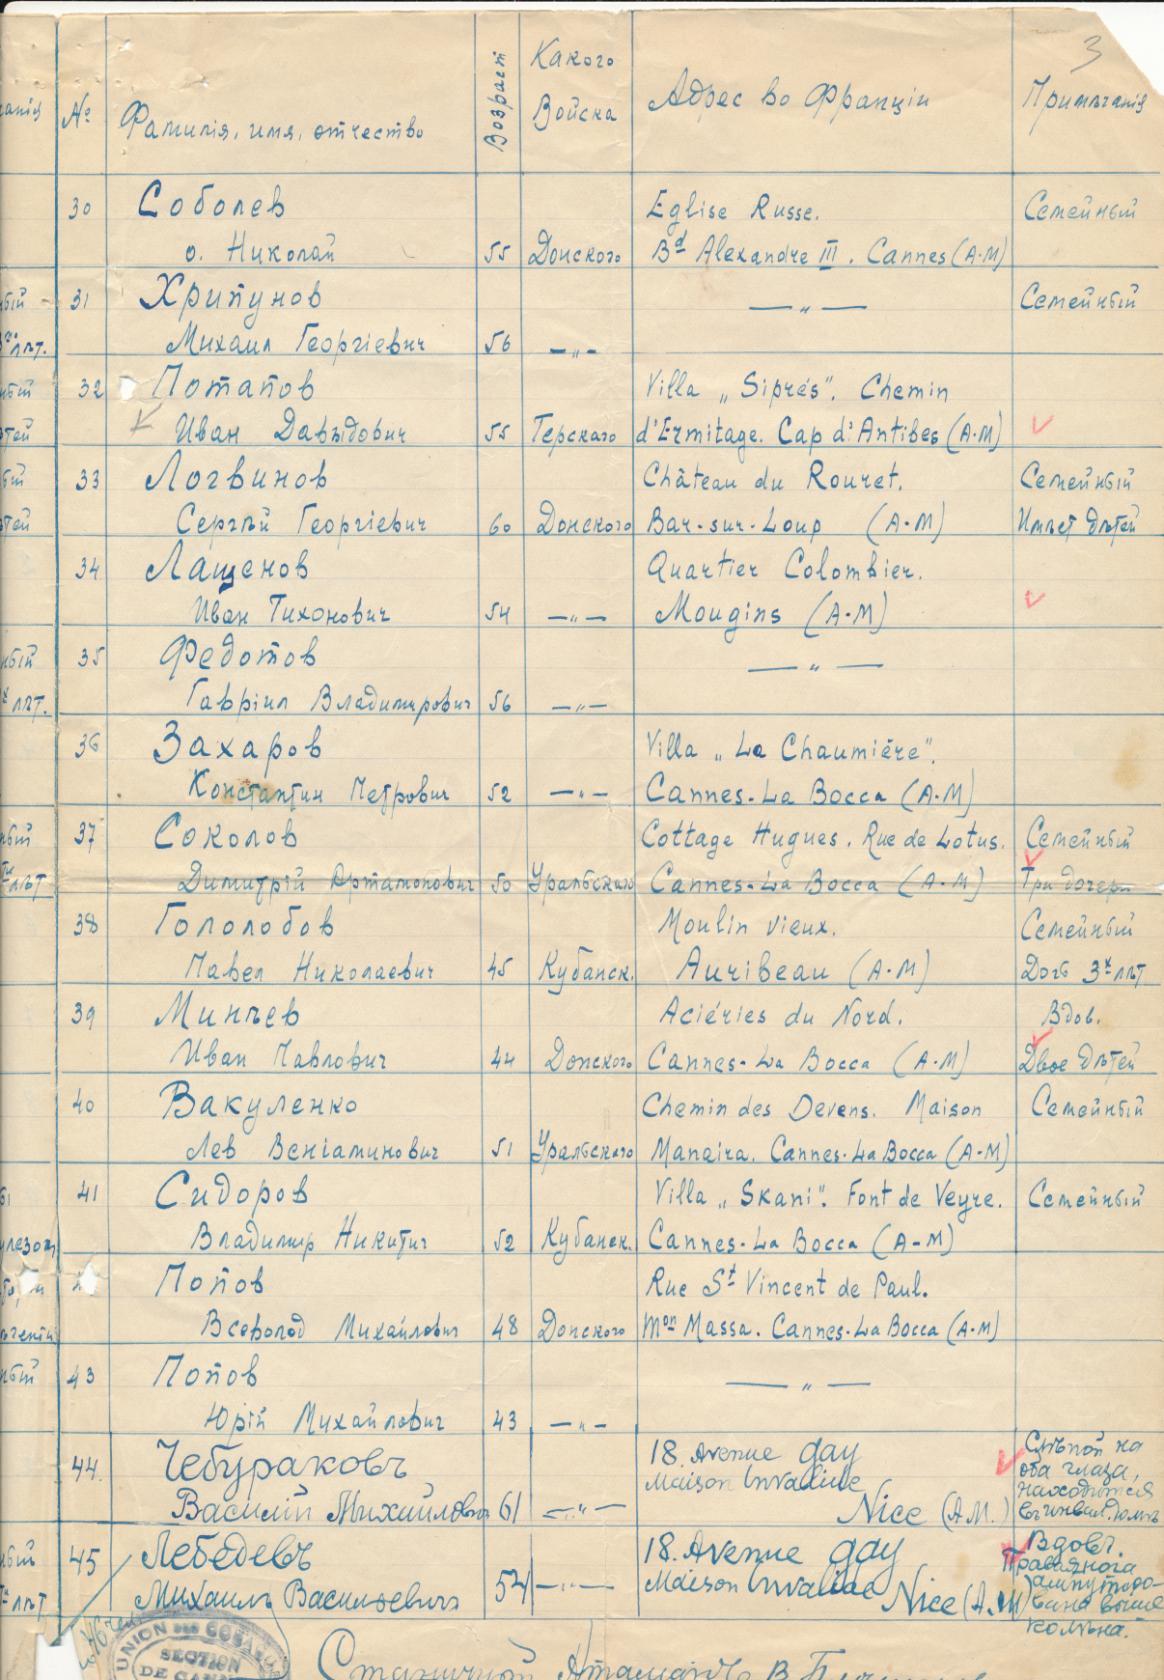 3
№ Фамилія, имя, отчество Возраст Какого Войска Адрес во Франціи Примѣчанія
30 Соболев Eglise Russe. Семейный
о. Николай 55 Донского Bd Alexandre III. Cannes (A-M)
31 Хрипунов — „ — Семейный
Михаил Георгіевич 56 — „ —
32 Потапов Villa „Siprés". Chemin
Иван Давыдович 55 Терского d'Ermitage. Cap d'Antibes (A-M)
33 Логвинов Château du Rouret. Семейный
Сергѣй Георгіевич 60 Донского Bar-sur-Loup (A-M) Имѣет дѣтей
34 Лащенов Quartier Colombier.
Иван Тихонович 54 — „ — Mougins (A-M)
35 Федотов — „ —
Гавріил Владимирович 56 — „ —
36 Захаров Villa „La Chaumière".
Константин Петрович 52 — „ — Cannes-La Bocca (A-M)
37 Соколов Cottage Hugues. Rue de Lotus. Семейный
Димитрій Артамонович 50 Уральского Cannes-La Bocca (A-M) Три дочери
38 Гололобов Moulin vieux. Семейный
Павел Николаевич 45 Кубанск. Auribeau (A-M) Дочь 3х лѣт
39 Минѣев Aciéries du Nord. Вдов.
Иван Павлович 44 Донского Cannes-La Bocca (A-M) Двое дѣтей
40 Вакуленко Chemin des Devens. Maison Семейный
Лев Веніаминович 51 Уральского Manaira. Cannes-La Bocca (A-M)
41 Сидоров Villa „Skani". Font de Veyre. Семейный
Владимир Никитич 52 Кубанск. Cannes-La Bocca (A-M)
Попов Rue St Vincent de Paul.
Всеволод Михайлович 48 Донского Mon Massa. Cannes-La Bocca (A-M)
43 Попов — „ —
Юрій Михайлович 43 — „ —
44. Чебураковъ 18. Avenue gay Слѣпой на
Maison Invalide оба глаза,
находится
Василій Михайлович 61 — „ — Nice (A.M.) въ инвал. домѣ
45 Лебедевъ 18. Avenue gay Вдовъ.
Правая нога
Maison Invalide ампутиро-
Михаилъ Васильевичъ 54 — „ — Nice (A.M) вана выше
колѣна.
UNION DES COSAQUES
SECTION
DE CANNES
Станичный Атаманъ В.